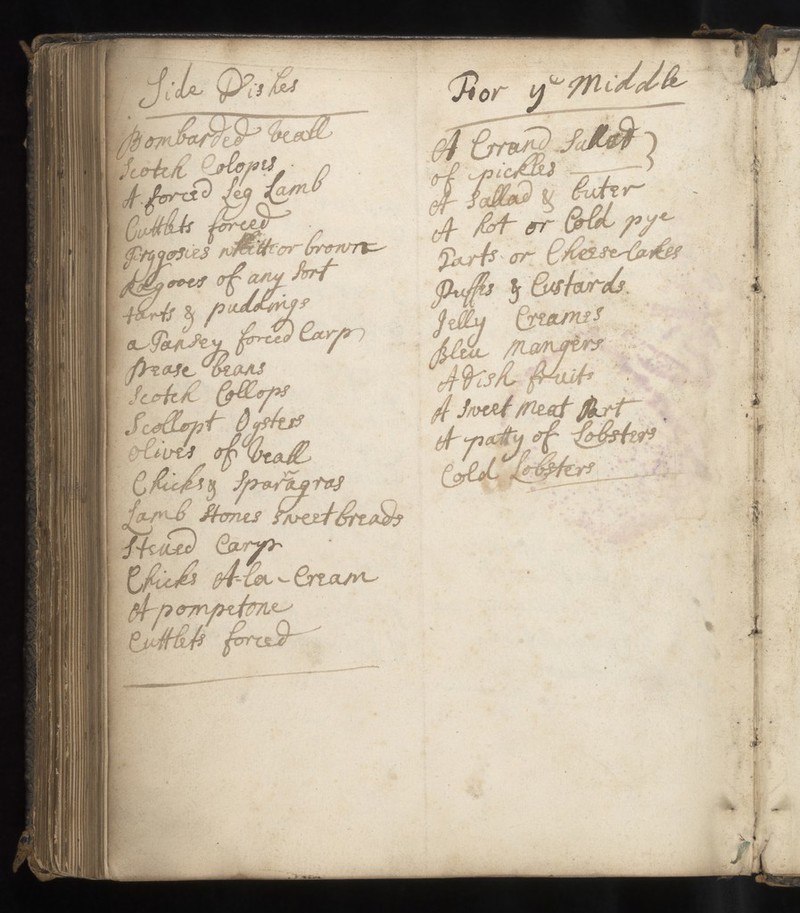 Side Dishes
Bombarded Veall
Scotch Colops
A forced Leg Lamb
Cuttlets forced
white or browne
Ragooes of any Sort
tarts & puddings
a Tansey forced Carp
Pease beans
Scotch Collops
Scollopt Oysters
Olives of Veall
Chicks & Sparragras
Lamb Stones Sweetbreads
Stued Carp
Chicks A-la-Cream
A pompetone
Cuttlets forced
For ye Middle
A Grand Sallad
of pickles
A Sallad & buter
A hot or Cold pye
Tarts or Cheese Cakes
Puffs & Custards.
Jelly Creames
Bleu Mangers
A Dish fruits
A Sweet Meat Tart
A patty of Lobsters
Cold Lobsters